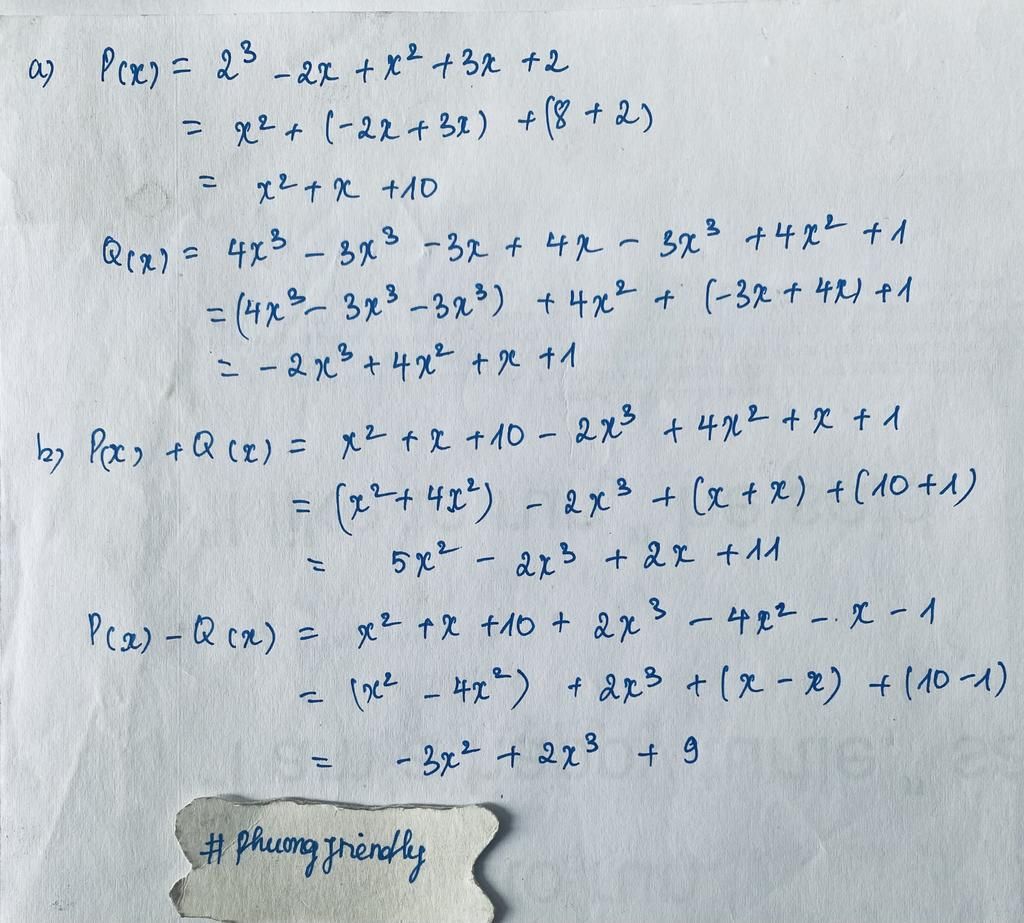 a) P(x) = 2³ - 2x + x² + 3x + 2
= x² + (-2x + 3x) + (8 + 2)
= x² + x + 10
Q(x) = 4x³ - 3x³ - 3x + 4x - 3x³ + 4x² + 1
= (4x³ - 3x³ - 3x³) + 4x² + (-3x + 4x) + 1
= - 2x³ + 4x² + x + 1
b) P(x) + Q(x) = x² + x + 10 - 2x³ + 4x² + x + 1
= (x² + 4x²) - 2x³ + (x + x) + (10 + 1)
= 5x² - 2x³ + 2x + 11
P(x) - Q(x) = x² + x + 10 + 2x³ - 4x² - x - 1
= (x² - 4x²) + 2x³ + (x - x) + (10 - 1)
= - 3x² + 2x³ + 9
# phuong friendly